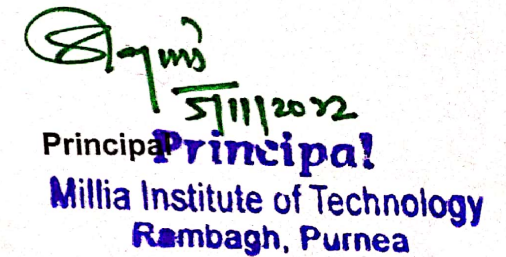 5/11/2022
Principal Principal
Millia Institute of Technology
Rambagh, Purnea